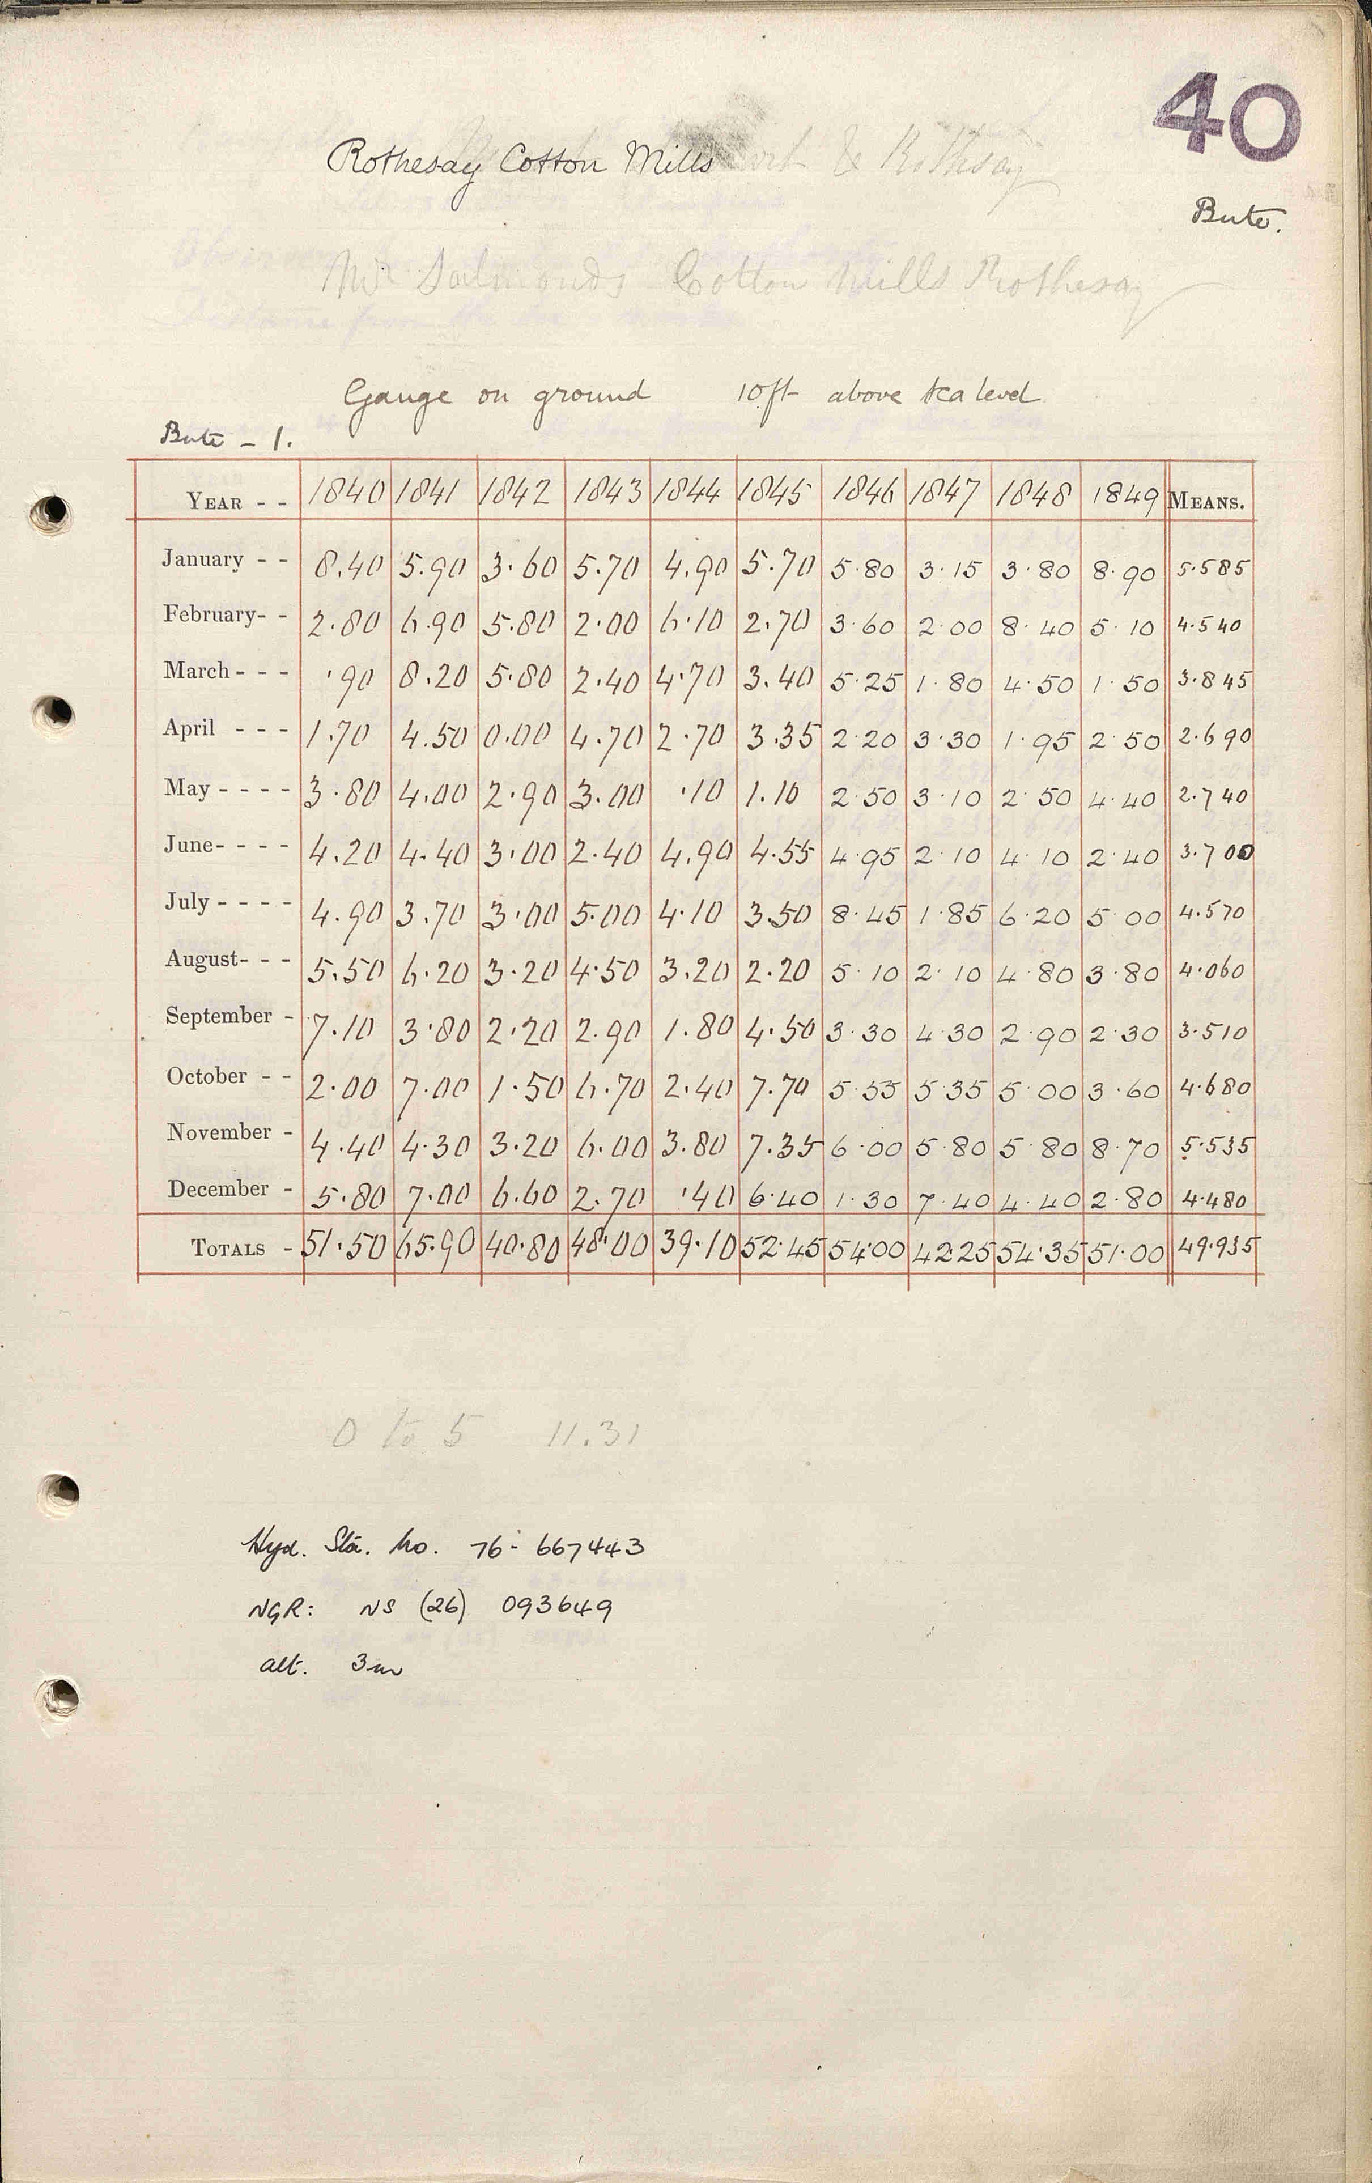 40
Rothesay Cotton Mills & Rothesay
Bute.
Mr Salmonds Cotton Mills Rothesay
Gauge on ground 10ft above sea level
Bute - 1.
YEAR - - 1840 1841 1842 1843 1844 1845 1846 1847 1848 1849 MEANS.
January - - 8.40 5.90 3.60 5.70 4.90 5.70 5.80 3.15 3.80 8.90 5.585
February- - 2.80 6.90 5.80 2.00 6.10 2.70 3.60 2.00 8.40 5.10 4.540
March - - - .90 8.20 5.80 2.40 4.70 3.40 5.25 1.80 4.50 1.50 3.845
April - - - 1.70 4.50 0.00 4.70 2.70 3.35 2.20 3.30 1.95 2.50 2.690
May - - - - 3.80 4.00 2.90 3.00 .10 1.10 2.50 3.10 2.50 4.40 2.740
June- - - - 4.20 4.40 3.00 2.40 4.90 4.55 4.95 2.10 4.10 2.40 3.700
July - - - - 4.90 3.70 3.00 5.00 4.10 3.50 8.45 1.85 6.20 5.00 4.570
August- - - 5.50 6.20 3.20 4.50 3.20 2.20 5.10 2.10 4.80 3.80 4.060
September - 7.10 3.80 2.20 2.90 1.80 4.50 3.30 4.30 2.90 2.30 3.510
October - - 2.00 7.00 1.50 6.70 2.40 7.70 5.55 5.35 5.00 3.60 4.680
November - 4.40 4.30 3.20 6.00 3.80 7.35 6.00 5.80 5.80 8.70 5.535
December - 5.80 7.00 6.60 2.70 .40 6.40 1.30 7.40 4.40 2.80 4.480
TOTALS - 51.50 65.90 40.80 48.00 39.10 52.45 54.00 42.25 54.35 51.00 49.935
0 to 5 11.31
Hyd. Sta. No. 76: 667443
NGR: NS (26) 093649
alt. 3m